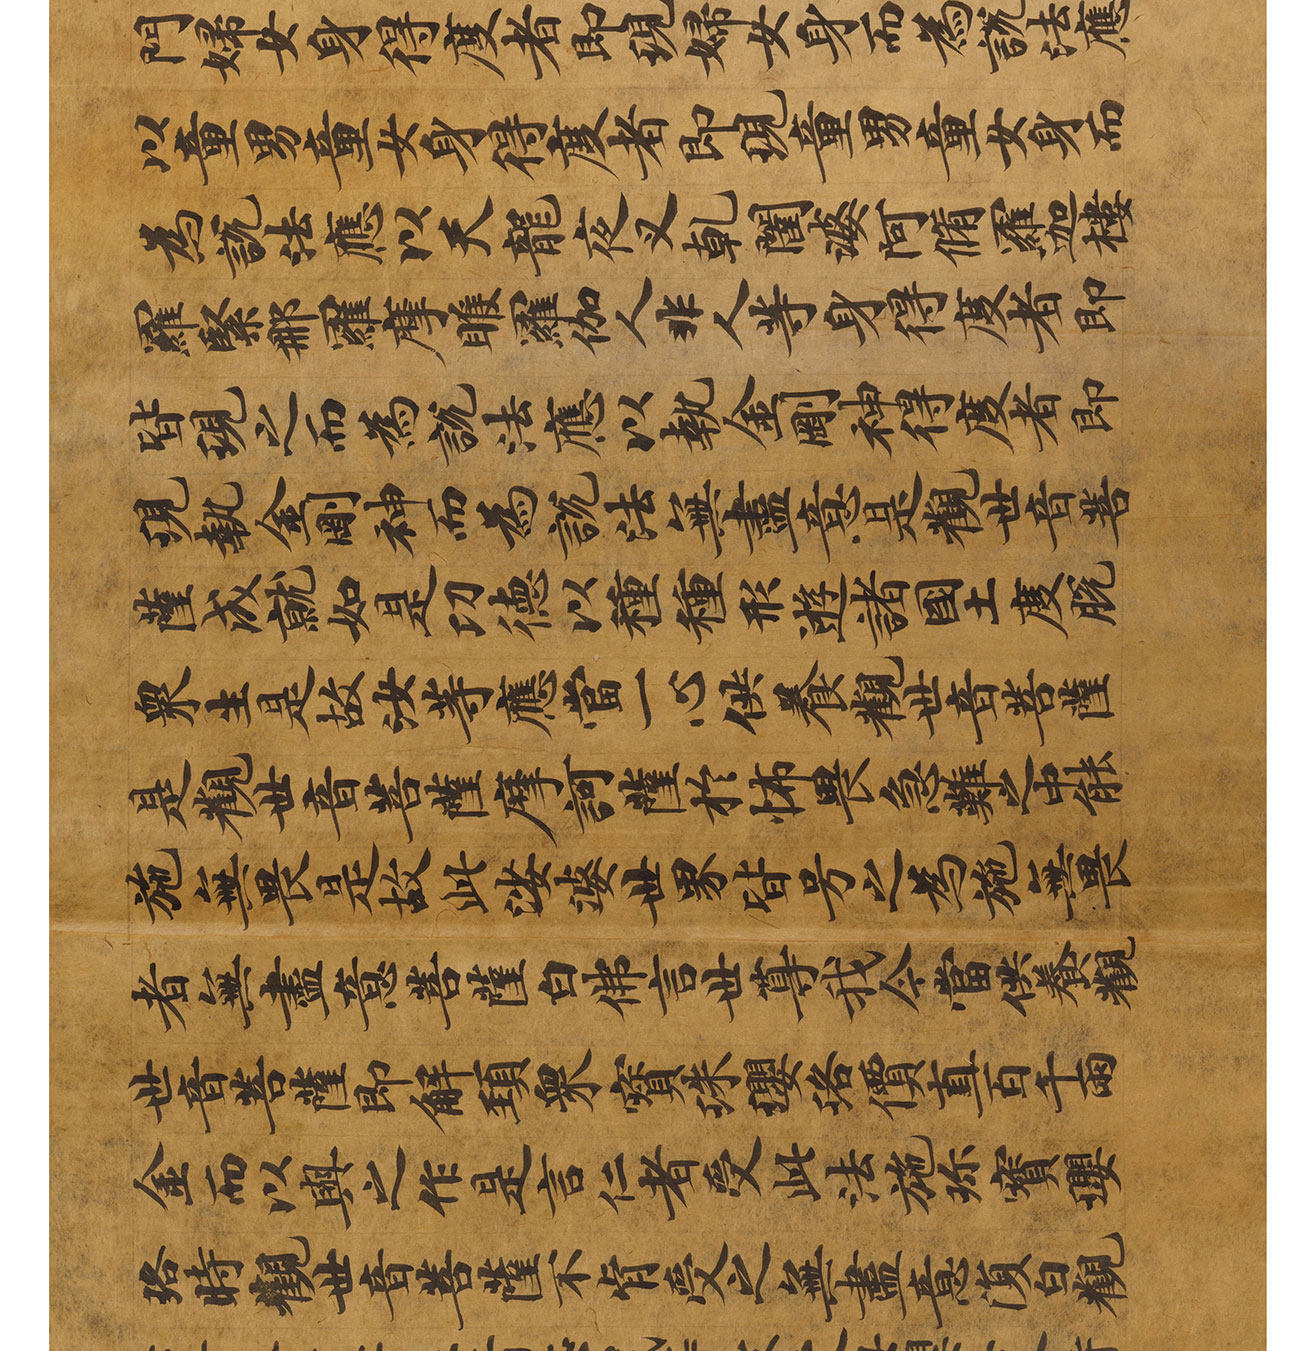 門婦女身得度者即現婦女身而為說法應
以童男童女身得度者即現童男童女身而
為說法應以天龍夜叉乾闥婆阿脩羅迦樓
羅緊那羅摩睺羅伽人非人等身得度者即
皆現之而為說法應以執金剛神得度者即
現執金剛神而為說法無盡意是觀世音菩
薩成就如是功德以種種形遊諸國土度脫
眾生是故汝等應當一心供養觀世音菩薩
是觀世音菩薩摩訶薩於怖畏急難之中能
施無畏是故此娑婆世界皆号之為施無畏
者無盡意菩薩白佛言世尊我今當供養觀
世音菩薩即解頸眾寳珠瓔珞價直百千兩
金而以與之作是言仁者受此法施珎寳瓔
珞時觀世音菩薩不肯受之無盡意復白觀